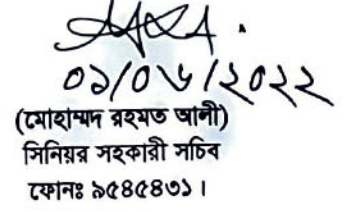 ০১/০৬/২০২২
(মোহাম্মদ রহমত আলী)
সিনিয়র সহকারী সচিব
ফোনঃ ৯৫৪৫৪৩১।